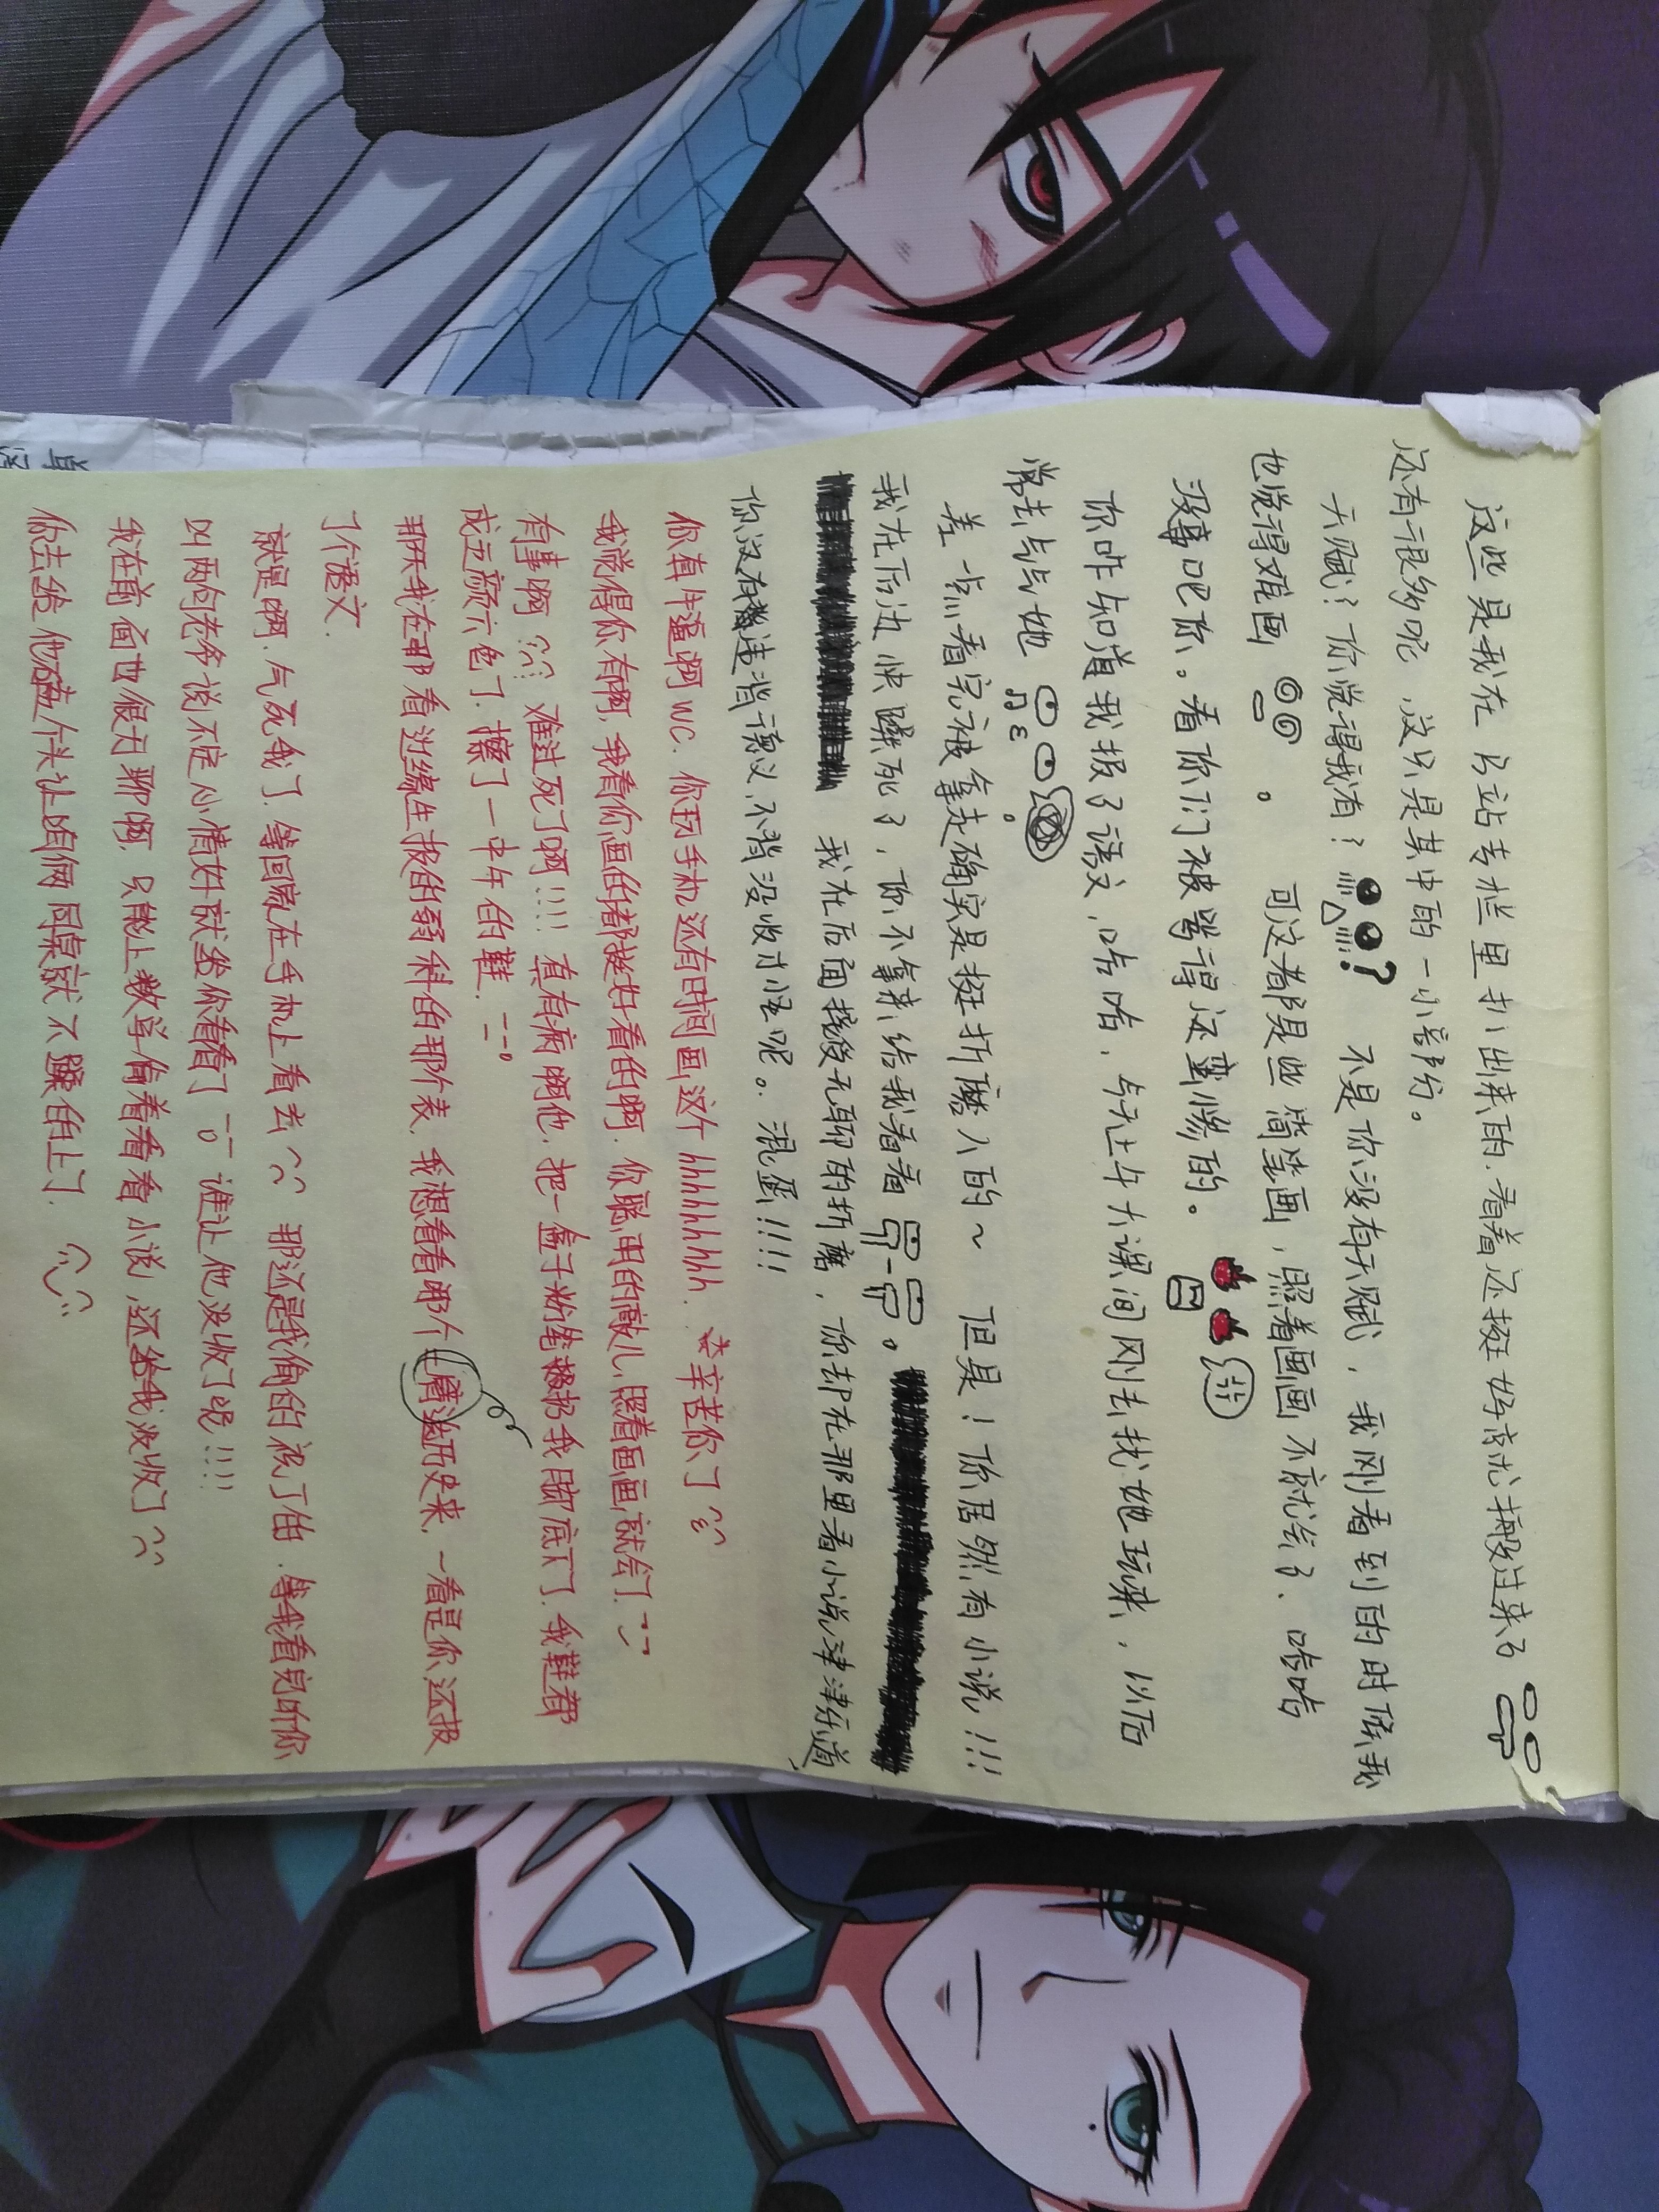 这些是我在B站专栏里扒出来的.看着还挺好就搬过来了
还有很多呢,这只是其中的一小部分。
天赋?你觉得我有? ? 不是你没有天赋,我刚看到的时候我
也觉得难画 。 可这都是些简笔画,照着画画不就会了.哈哈
没事吧你。看你们被骂得还蛮惨的。
你咋知道我报了语文,哈哈,今天上午大课间刚去找她玩来,以后
常去气气她
差一点看完被拿走确实是挺折磨人的~ 但是!你居然有小说!!!
我在后边快躁死了,你不拿来给我看看 。
我在后面接受无聊的折磨,你却在那里看小说津津乐道,
你这有违背德义,不背没收才怪呢。. 混蛋!!!!
你真牛逼啊WC.你玩手机还有时间画这个hhhhhhhhh. 辛苦你了
我觉得你有啊,我看你画的都挺好看的啊.你聪明的敲儿,照着画画就会了.
有事啊 难过死了啊!!!! 真有病啊他.把一盒子粉笔扔我脚底下了.我鞋都
成五颜六色了.擦了一中午的鞋.
那天我在那看边缘生报的弱科的那个表.我想看看哪个选历史来.一看是你还报
了个语文.
就是啊.气死我了.等回家在手机上看去 那还是我偷的祝丁的.等我看完听你
叫两句老爷说不定心情好就给你看看了 谁让他没收了呢!!!!
我在前面也很无聊啊.只能上数学偷着看看小说,还给我没收了
你去给他磕个头让咱俩同桌就不躁的上了.